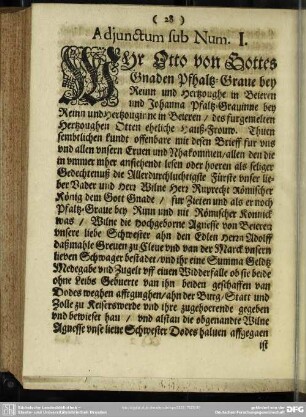 ( 28 )
Adjunctum sub Num. I.
WHr Otto von Gottes
Gnaden Pfhaltz-Graue bey
Reinn und Hertzoughe in Beieren
und Johanna Pfaltz-Grauinne bey
Reinn und Hertzouginne in Beieren / des furgemelten
Hertzoughen Otten eheliche Hauß-Frouw. Thuen
semblichen kundt offenbare mit desen Brieff fur uns
und allen unsern Eruen und Nhakommen / allen den die
in ummer mher ansiehendt lesen oder hoeren als seliger
Gedechtenuß die Allerdurchluchtigste Fürste unser lie-
ber Vader und Herr Wilne Herr Ruprecht Römischer
König dem Gott Gnade / fur Zieten und als er noch
Pfaltz-Graue bey Rinn und nit Römischer Konnick
was / Wilne die Hochgeborne Agnesse von Beieren
unsere liebe Schwester ahn den Edlen Hern Adolff
daßmahle Greuen zu Cleue und van der Marck unsern
lieven Schwager bestadet / und ihr eine Summa Geldtz
Medegabe und Zugelt uff einen Widderfalle ob sie beide
ohne Leibs Gebuerte van ihn beiden geschaffen van
Dodes weghen affginghen / ahn der Burg / Statt und
Zolle zu Keiserswerde und ihre zugehoerende gegeben
und bewieset hau / und alstan die obgenandte Wilne
Agnesse unse lieue Schwester Dodes haluen affgegaen
ist